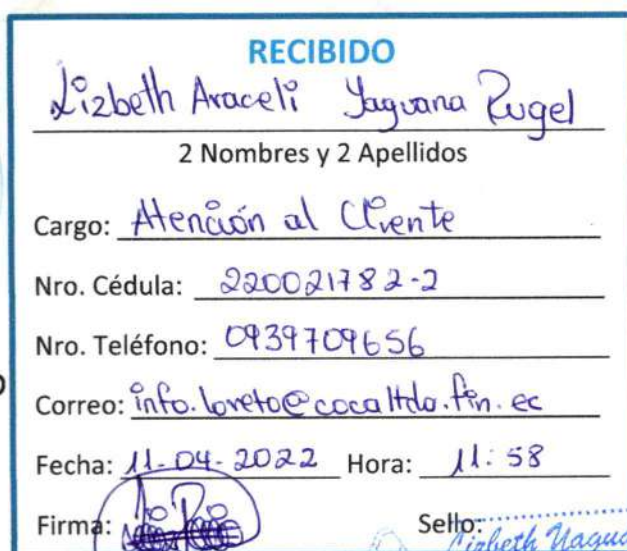 RECIBIDO
Lizbeth Araceli Yaguana Rugel
2 Nombres y 2 Apellidos
Cargo: Atención al Cliente
Nro. Cédula: 220021782-2
Nro. Teléfono: 0939709656
Correo: info.loreto@cocaltda.fin.ec
Fecha: 11-04-2022 Hora: 11:58
Firma: Sello:
Lizbeth Yagua